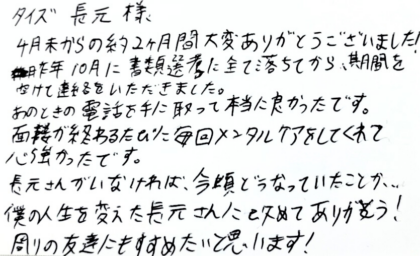 タイズ 長元 様、
4月末からの約2ヶ月間大変ありがとうございました!
昨年10月に書類選考に全て落ちてから、期間を
空けて連絡をいただきました。
あのときの電話を手に取って本当に良かったです。
面接が終わるたびに毎回メンタルケアをしてくれて
心強かったです。
長元さんがいなければ、今頃どうなっていたことか、、
僕の人生を変えた長元さんに改めてありがとう!
周りの友達にもすすめたいと思います!